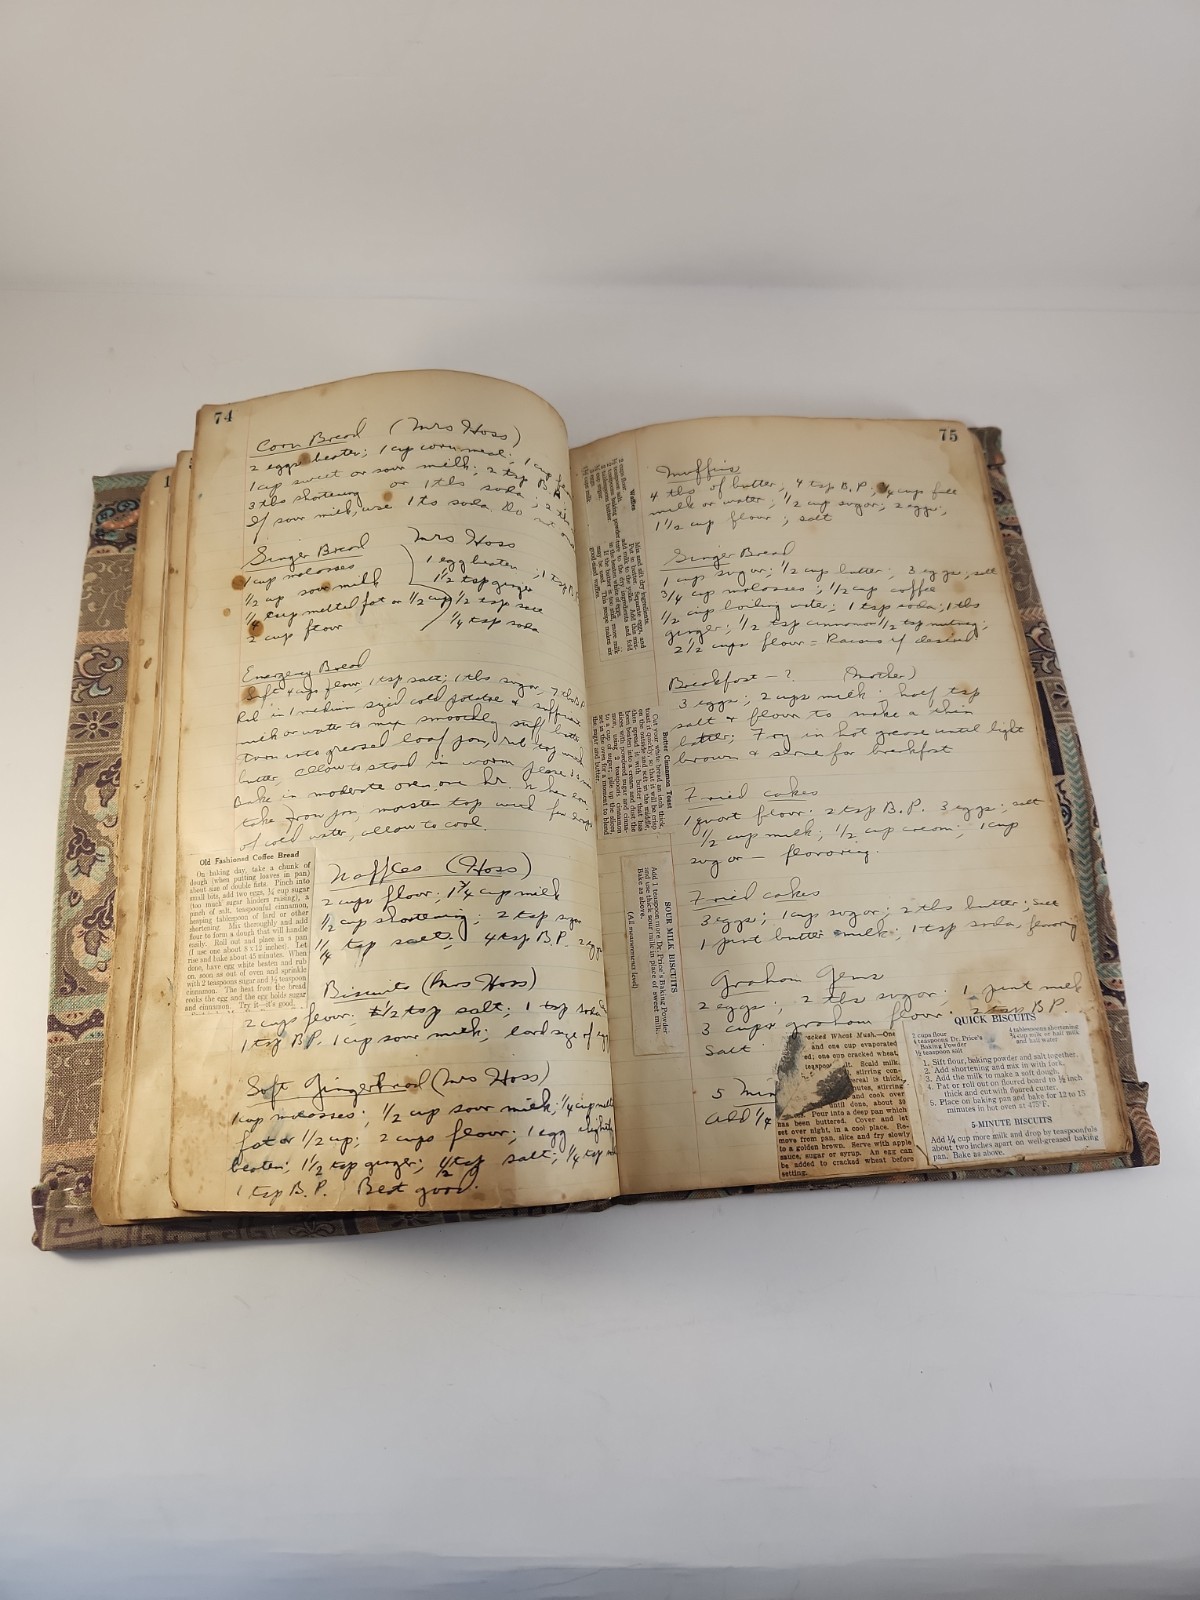 74
Corn Bread (Mrs Hoss)
2 eggs beaten; 1 cup corn meal; 1 cup
1 cup sweet or sour milk; 2 tsp B.P.
3 tbs shortening or 1 tbs soda; 2 tbs
If sour milk, use 1 ts soda. Do not
Ginger Bread Mrs Hoss
1 cup molasses
1/2 cup sour milk
1/4 cup melted fat or 1/2 cup
2 cup flour
1 egg beaten; 1 tsp B.P.
1 1/2 tsp ginger
1/2 tsp salt
1/4 tsp soda
Emergency Bread
Sift 4 cups flour, 1 tsp salt; 1 tbs sugar, 7 tbs B.P.
Rub in 1 medium sized cold potatoe & sufficient
milk or water to mix smoothly stiff batter
turn into greased loaf pan,
butter, allow to stand in warm place
Bake in moderate oven, one hr. When
take from pan, moisten top
of cold water, allow to cool.
Old Fashioned Coffee Bread
On baking day, take a chunk of
dough (when putting leaves in pan)
about size of double fists. Pinch into
small bits, add two eggs, ¼ cup sugar
(too much sugar hinders raising), a
pinch of salt, teaspoonful cinnamon,
heaping tablespoon of lard or other
shortening. Mix thoroughly and add
flour to form a dough that will handle
easily. Roll out and place in a pan
(I use one about 8 x 12 inches). Let
rise and bake about 45 minutes. When
done, have egg white beaten and rub
on, soon as out of oven and sprinkle
with 2 teaspoons sugar and ½ teaspoon
cinnamon. The heat from the bread
cooks the egg and the egg holds sugar
and cinnamon. Try it—it's good.
Waffles (Hoss)
2 cups flour; 1 3/4 cup milk
1/2 cup shortening; 2 tsp sugar
1/4 tsp salt; 4 tsp B.P. 2 eggs
Biscuits (Mrs Hoss)
2 cups flour; 1/2 tsp salt; 1 tsp soda
1 tsp B.P. 1 cup sour milk; lard size of egg
Soft Gingerbread (Mrs Hoss)
1 cup molasses; 1/2 cup sour milk; 1/4 cup melted
fat or 1/2 cup; 2 cups flour; 1 egg slightly
beaten; 1 1/2 tsp ginger; 1/2 tsp salt; 1/4 tsp
1 tsp B.P. Best good.
75
Waffles
Mix and sift dry ingredients.
Butter Cinnamon Toast
Cut your white bread an inch thick,
toast it quickly, so that it will be crisp
on the outside and soft in the middle,
SOUR MILK BISCUITS
Add 1 teaspoon more Dr. Price's Baking Powder
and use thick sour milk in place of sweet milk.
Bake as above.
(All measurements level)
Muffins
4 tbs of butter, 4 tsp B.P, 3/4 cup full
milk or water; 1/2 cup sugar; 2 eggs;
1 1/2 cup flour; salt
Ginger Bread
1 cup sugar; 1/2 cup butter; 3 eggs; salt
3/4 cup molasses; 1/2 cup coffee
1/2 cup boiling water; 1 tsp soda; 1 tbs
ginger; 1/2 tsp cinnamon 1/2 tsp nutmeg;
2 1/2 cups flour = Raisins if desired
Breakfast - ? (Mother)
3 eggs; 2 cups milk; half tsp
salt & flour to make a thin
batter; Fry in hot grease until light
brown & serve for breakfast
Fried cakes
1 quart flour; 2 tsp B.P. 3 eggs; salt
1/2 cup milk; 1/2 cup cream; 1 cup
sugar - flavoring.
Fried cakes
3 eggs; 1 cup sugar; 2 tbs butter; salt
1 pint butter milk; 1 tsp soda, flavoring
Graham Gems
2 eggs; 2 tbs sugar; 1 pint milk
3 cups graham flour; 2 tsp BP.
Salt
5 Min
Add 1/4
acked Wheat Mush.—One
and one cup evaporated
ed; one cup cracked wheat,
teaspoon
lt. Scald milk,
stirring con-
ereal is thick,
nutes, stirring
and cook over
until done, about 30
Pour into a deep pan which
has been buttered. Cover and let
set over night, in a cool place. Re-
move from pan, slice and fry slowly
to a golden brown. Serve with apple
sauce, sugar or syrup. An egg can
be added to cracked wheat before
setting.
QUICK BISCUITS
2 cups flour
4 teaspoons Dr. Price's
Baking Powder
½ teaspoon salt
4 tablespoons shortening
¾ cup milk or half milk
and half water
1. Sift flour, baking powder and salt together.
2. Add shortening and mix in with fork.
3. Add the milk to make a soft dough.
4. Pat or roll out on floured board to ½ inch
thick and cut with floured cutter.
5. Place on baking pan and bake for 12 to 15
minutes in hot oven at 475°F.
5-MINUTE BISCUITS
Add ¼ cup more milk and drop by teaspoonfuls
about two inches apart on well-greased baking
pan. Bake as above.